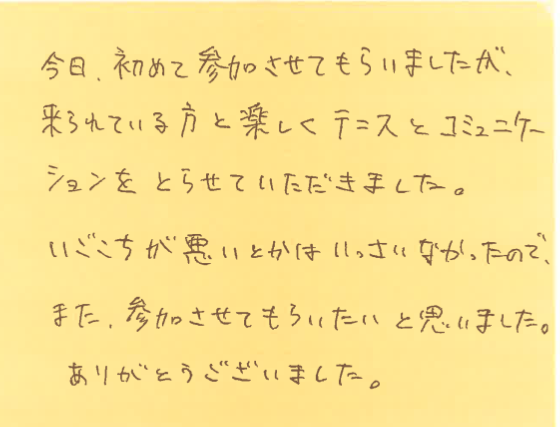 今日、初めて参加させてもらいましたが、
来られている方と楽しくテニスとコミュニケー
ションをとらせていただきました。
いごこちが悪いとかはいっさいなかったので、
また、参加させてもらいたいと思いました。
ありがとうございました。